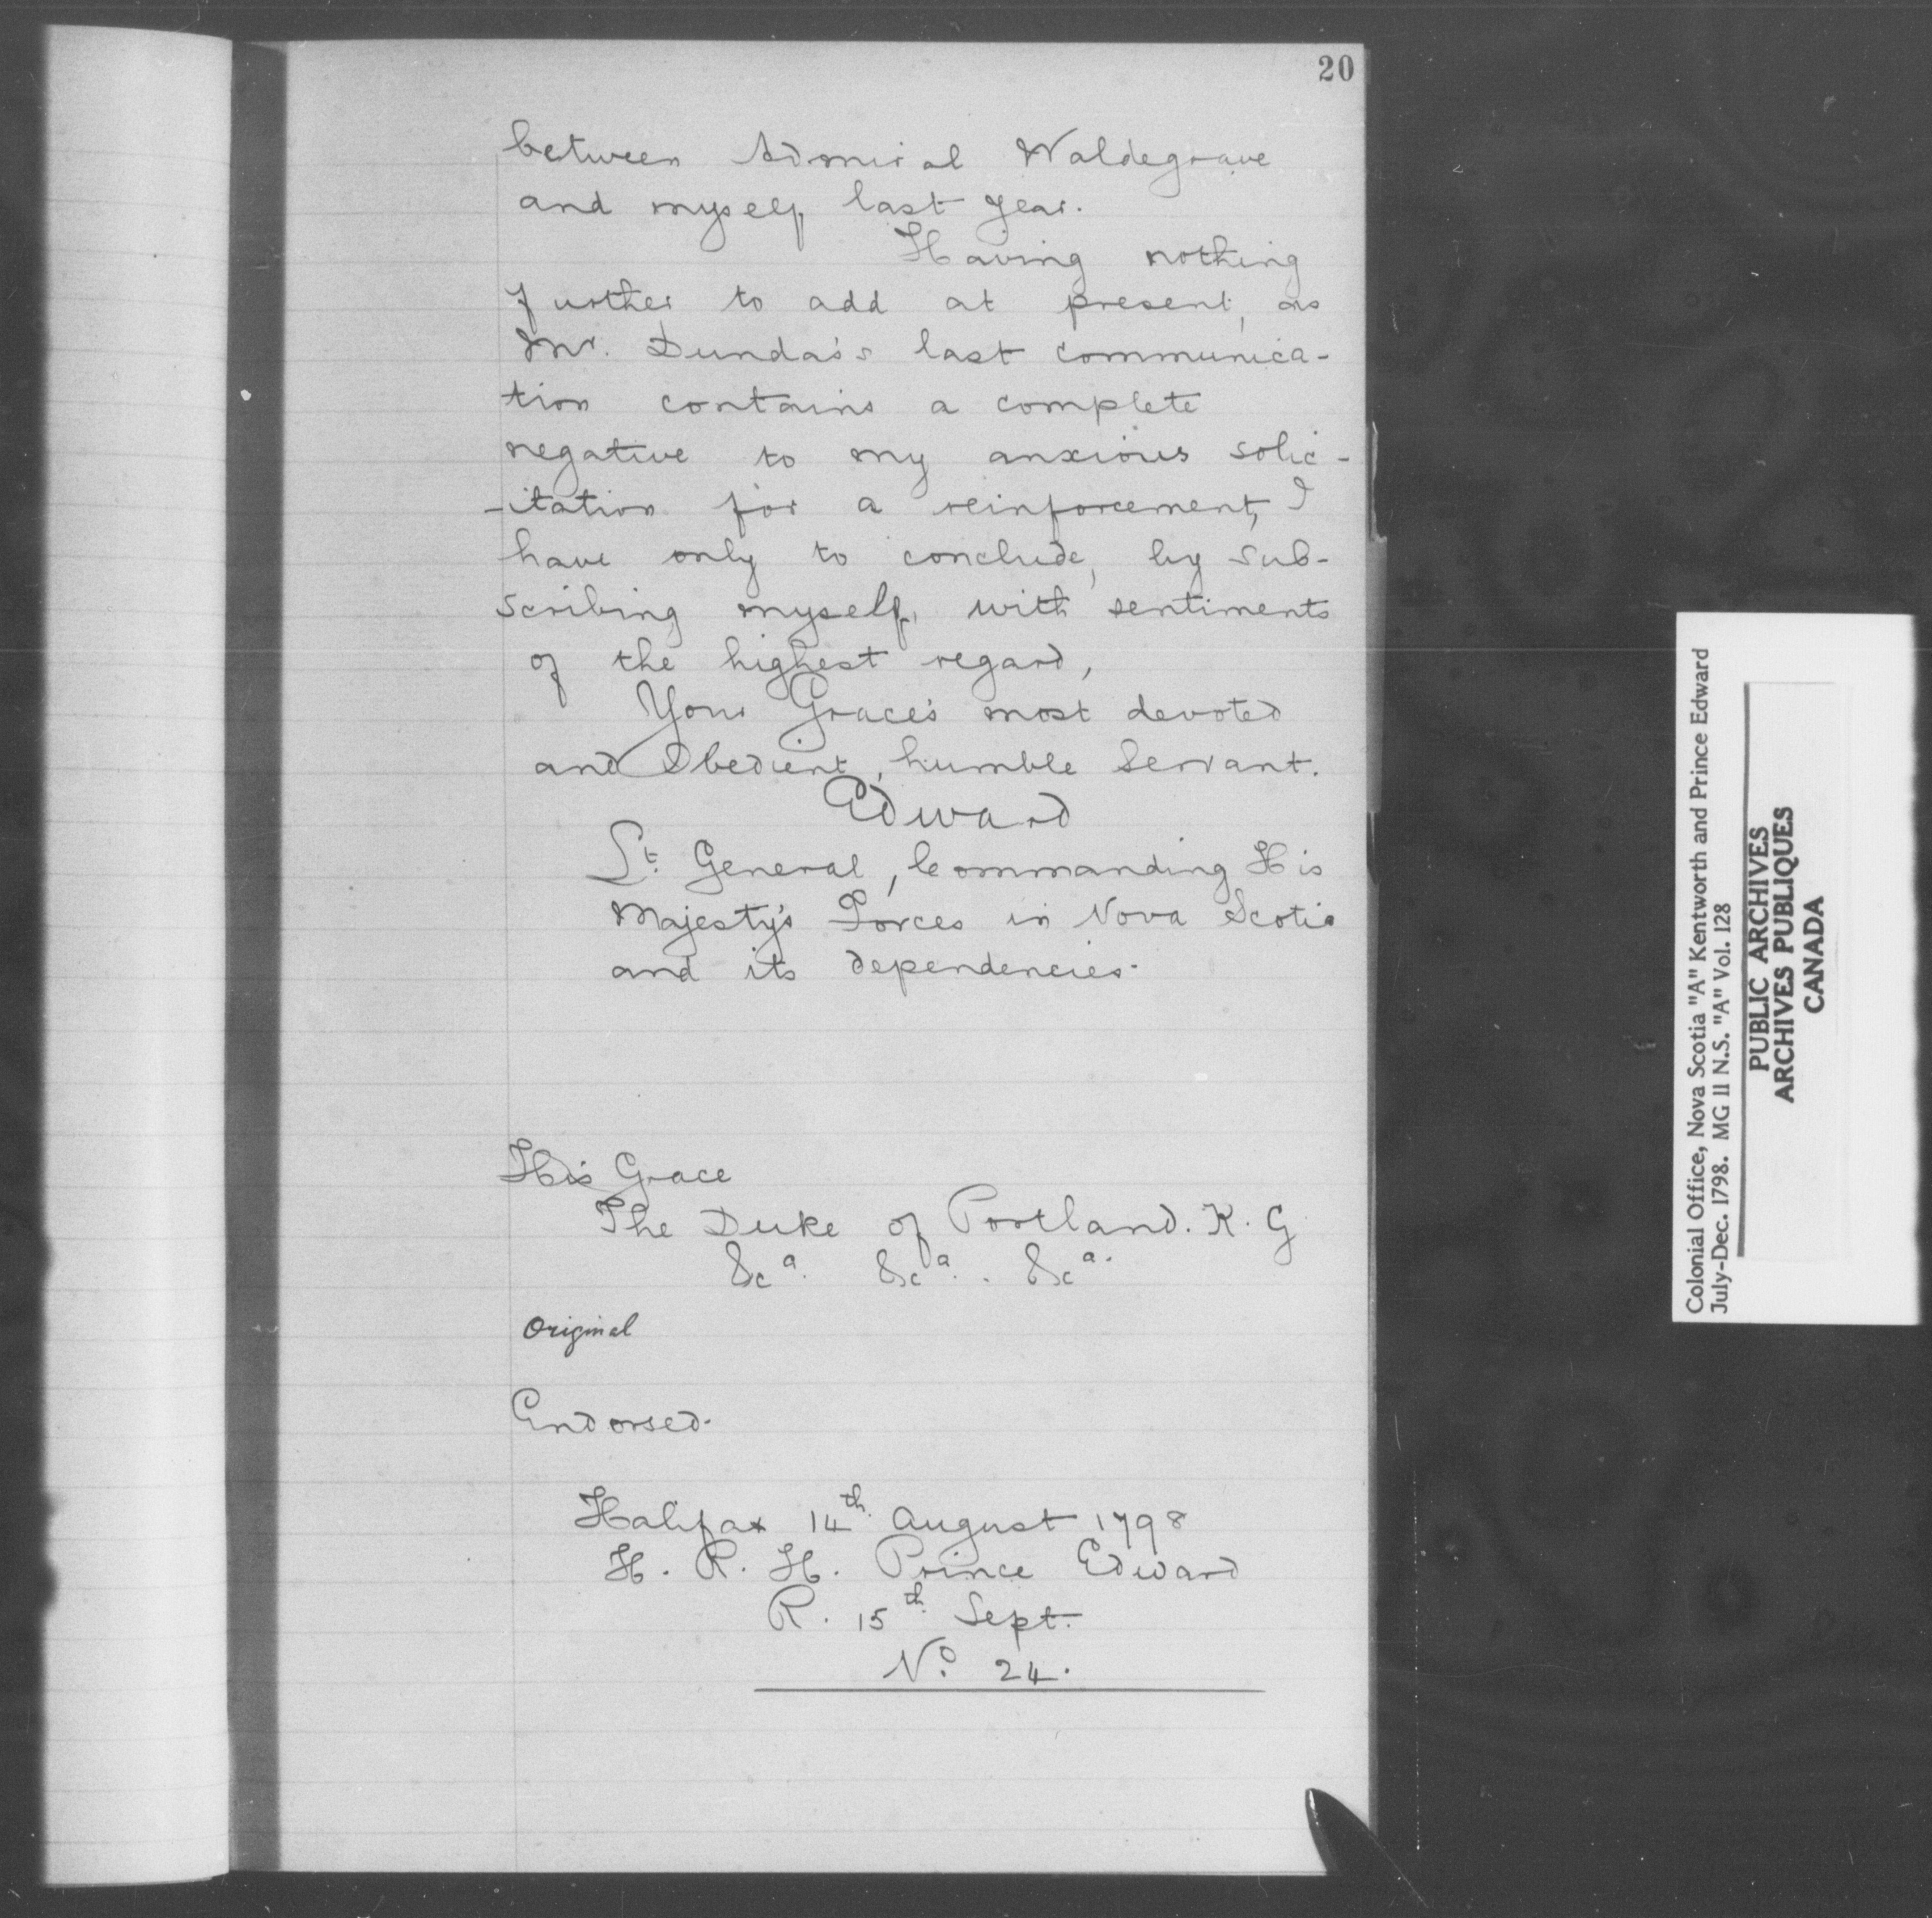 20
between Admiral Waldegrave
and myself last year.
Having nothing
further to add at present, as
Mr. Dundas's last communica-
tion contains a complete
negative to my anxious solic-
-itation for a reinforcement, I
have only to conclude, by sub-
scribing myself, with sentiments
of the highest regard,
Your Grace's most devoted
and Obedient, humble Servant.
Edward
Lt. General, Commanding His
Majesty's Forces in Nova Scotia
and its dependencies.
His Grace
The Duke of Portland. K. G
&ca. &ca. &ca.
Original
Endorsed.
Halifax 14th. August 1798
H. R. H. Prince Edward
R. 15th. Sept.
No. 24.
Colonial Office, Nova Scotia "A" Kentworth and Prince Edward
July-Dec. 1798. MG 11 N.S. "A" Vol. 128
PUBLIC ARCHIVES
ARCHIVES PUBLIQUES
CANADA